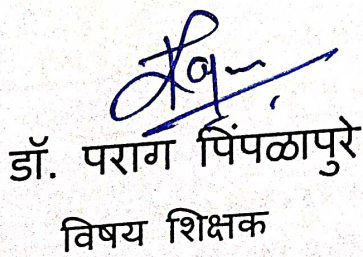 डॉ. पराग पिंपळापुरे
विषय शिक्षक